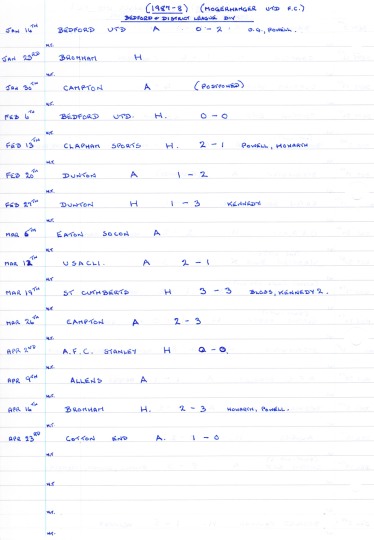 (1987-8) (MOGERHANGER UTD F.C.)
BEDFORD & DISTRICT LEAGUE DIV
JAN 16TH BEDFORD UTD A 0-2 O.G., POWELL.
JAN 23RD BROMHAM H
JAN 30TH CAMPTON A (POSTPONED)
FEB 6TH BEDFORD UTD. H. 0-0
FEB 13TH CLAPHAM SPORTS H. 2-1 POWELL, HOWARTH
FEB 20TH DUNTON A 1-2
FEB 27TH DUNTON H 1-3 KENNEDY
MAR 6TH EATON SOCON A
MAR 12 USACLI. A 2-1
MAR 19TH ST CUTHBERTS H 3-3 BLOGS, KENNEDY 2.
MAR 26TH CAMPTON A 2-3
APR 2ND A.F.C. STANLEY H 0-0.
APR 9TH ALLENS A
APR 16TH BROMHAM H. 2-3 HOWARTH, POWELL.
APR 23RD COTTON END A. 1-0